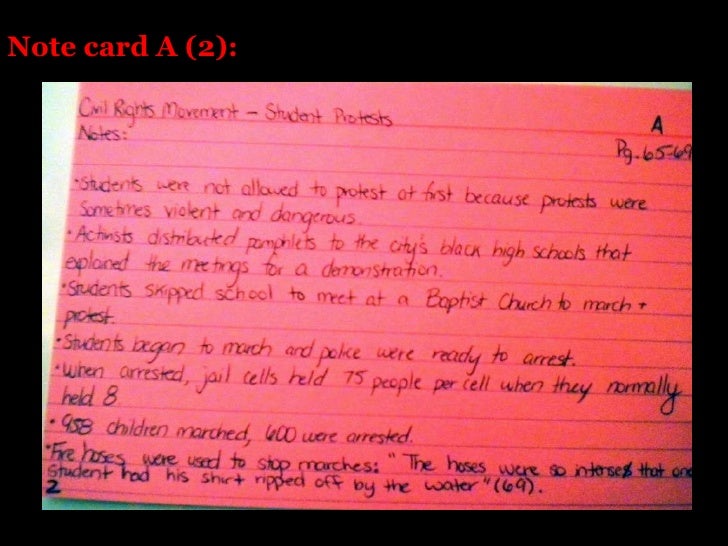 Note card A (2):
Civil Rights Movement – Student Protests
A
Notes:
Pg. 65-69
• Students were not allowed to protest at first because protests were
sometimes violent and dangerous.
• Activists distributed pamphlets to the city's black high schools that
explained the meetings for a demonstration.
• Students skipped school to meet at a Baptist Church to march +
protest.
• Students began to march and police were ready to arrest.
• When arrested, jail cells held 75 people per cell when they normally
held 8
• 958 children marched, 600 were arrested.
• Fire hoses were used to stop marches: "The hoses were so intense that one
student had his shirt ripped off by the water" (69).
2